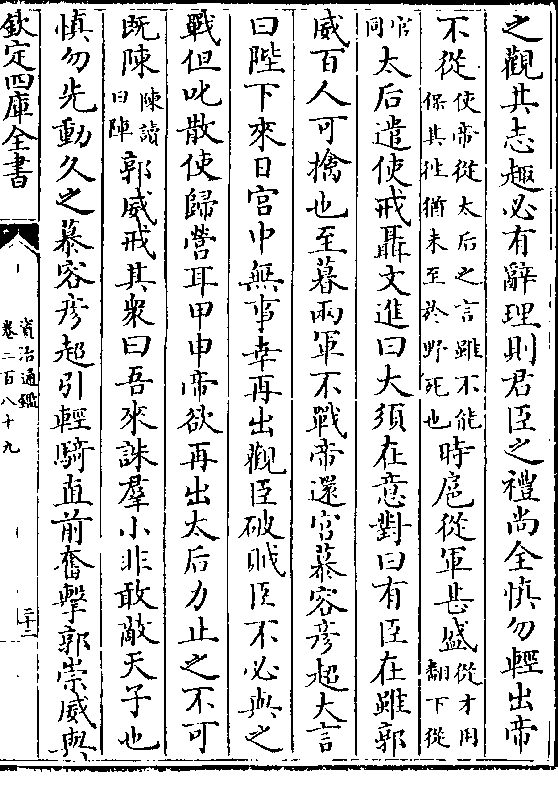 之觀其志趣必有辭理則君臣之禮尚全慎勿輕出帝
不從使帝從太后之言雖不能保其徃猶未至於野死也時扈從軍甚盛從才用翻下從
官同太后遣使戒聶文進曰大須在意對曰有臣在雖郭
威百人可擒也至暮兩軍不戰帝還宫慕容彦超大言
曰陛下來日宫中無事幸再出觀臣破賊臣不必與之
戰但叱散使歸營耳甲申帝欲再出太后力止之不可
既陳陳讀曰陣郭威戒其衆曰吾來誅羣小非敢敵天子也
慎勿先動久之慕容彦超引輕騎直前奮擊郭崇威與
欽定四庫全書
資治通鑑
卷二百八十九
二十三